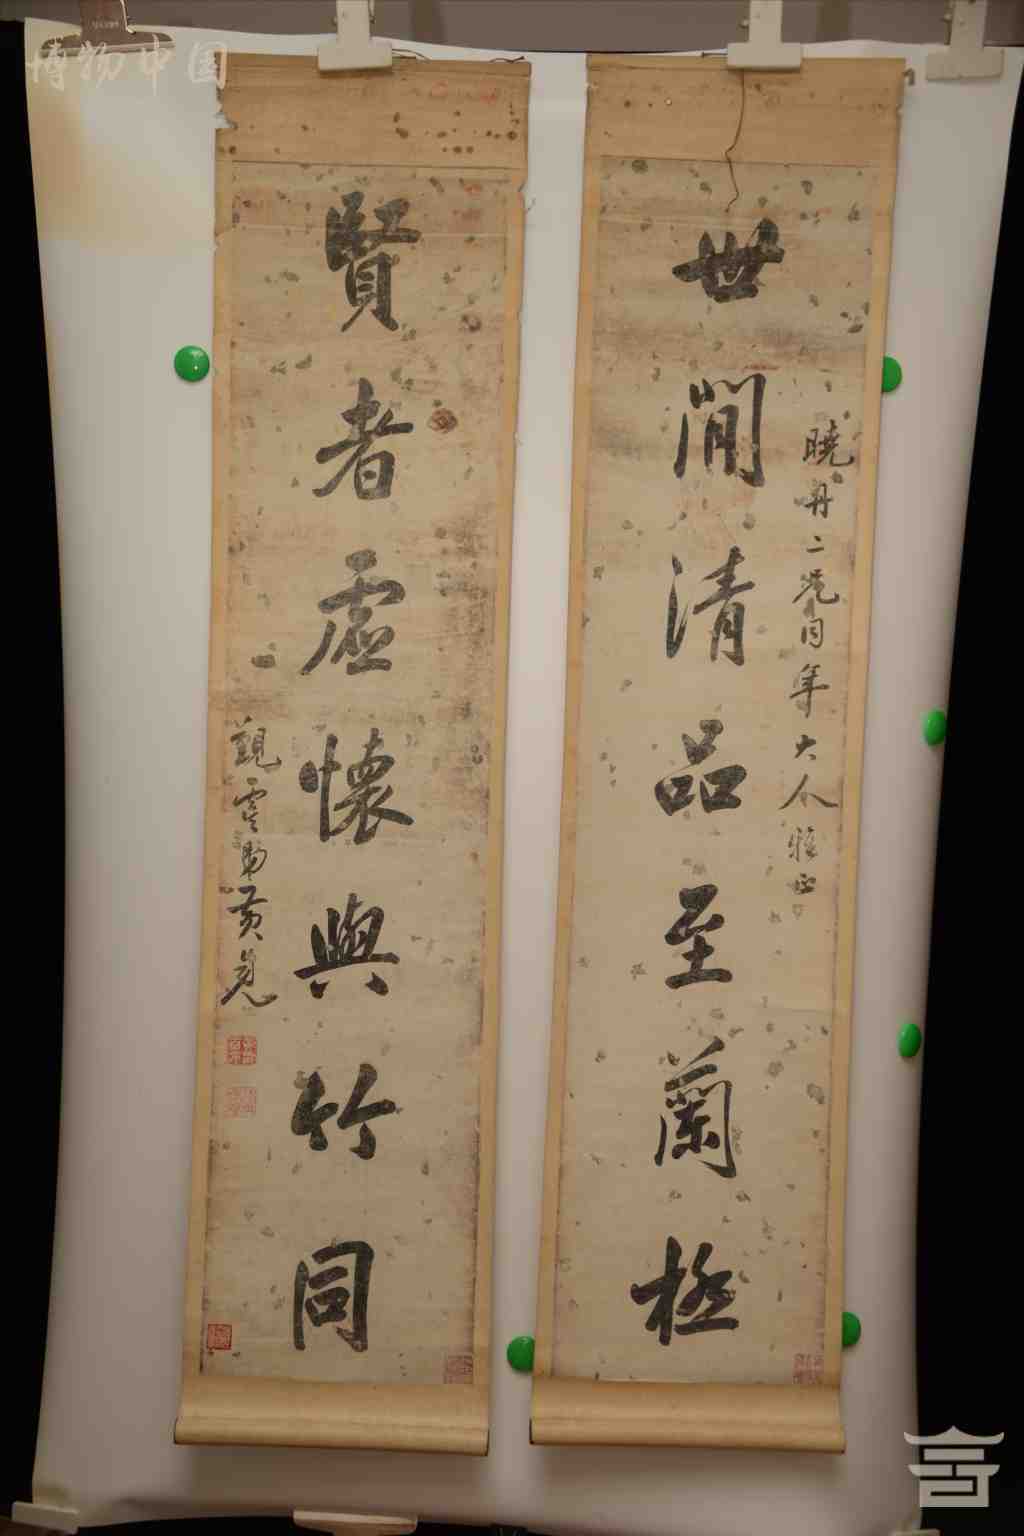 博物中国
世間清品至蘭極
曉舟二兄同年大人雅正
賢者虛懷與竹同
覲虞弟黃